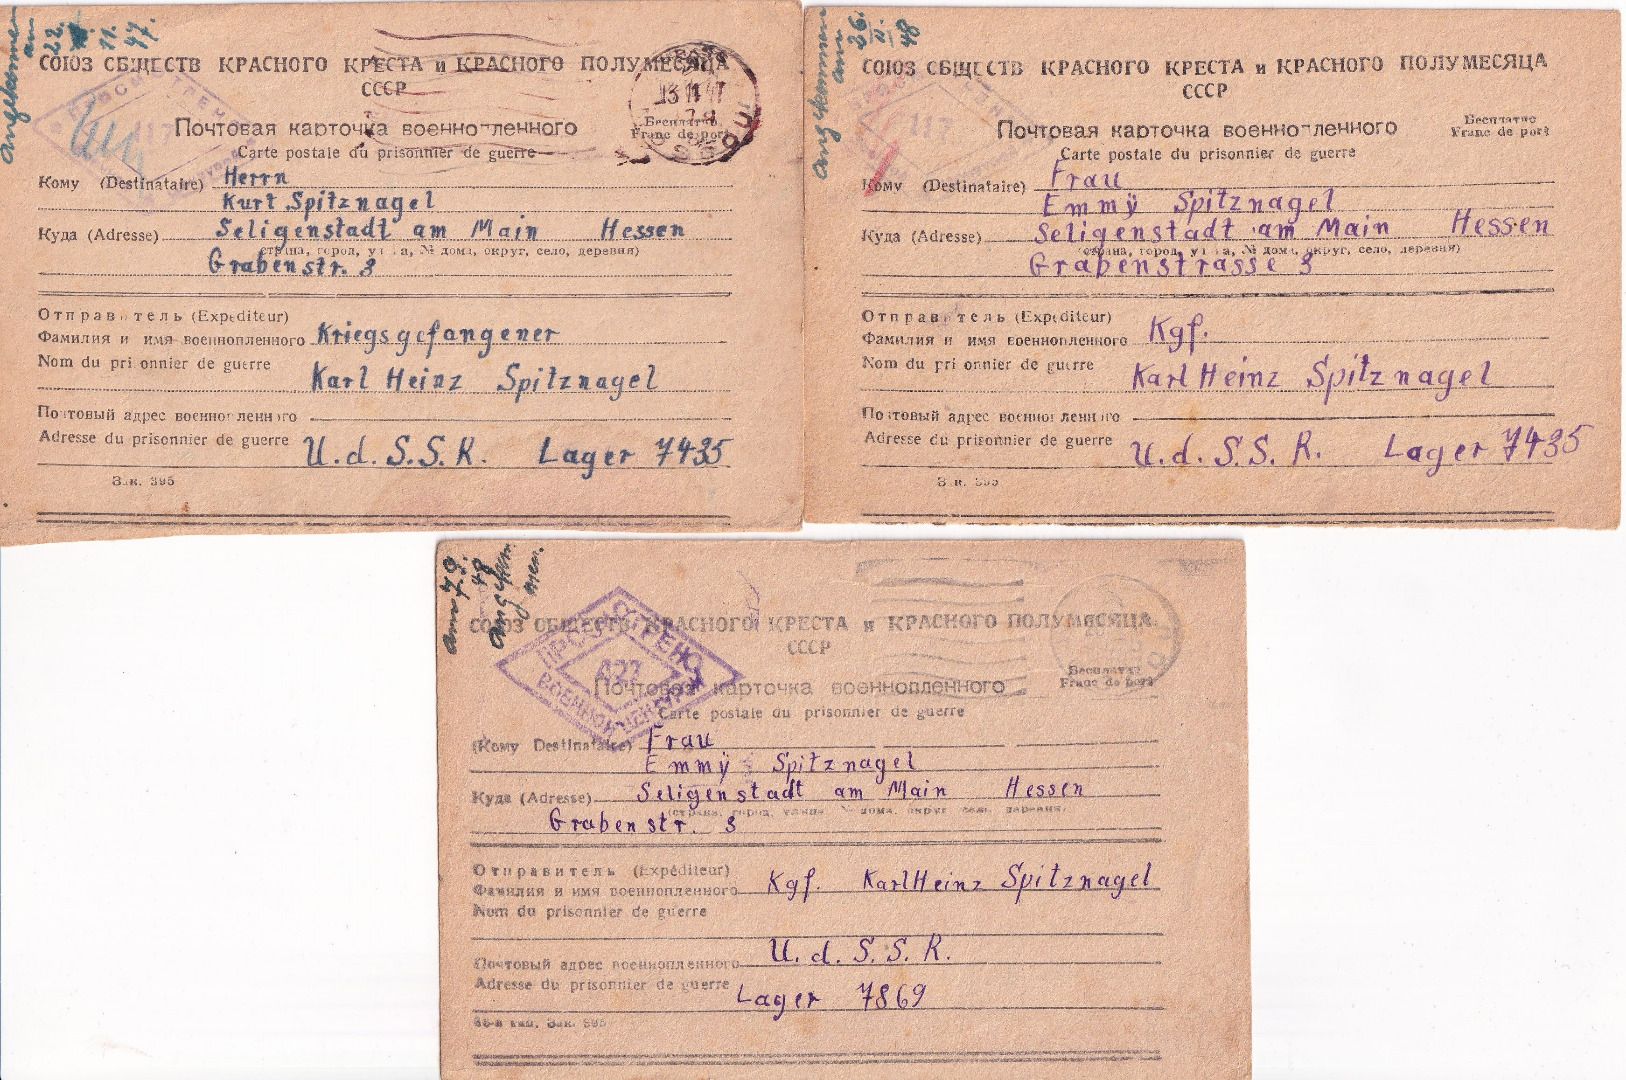 angekommen
am
22.
11.
47.
СОЮЗ ОБЩЕСТВ КРАСНОГО КРЕСТА и КРАСНОГО ПОЛУМЕСЯЦА
СССР
117
13 11 47
Бесплатно
Franc de port
Почтовая карточка военнопленного
Carte postale du prisonnier de guerre
Кому (Destinataire) Herrn
Kurt Spitznagel
Куда (Adresse) Seligenstadt am Main Hessen
страна, город, улица, № дома, округ, село, деревня)
Grabenstr. 3
Отправитель (Expéditeur)
Фамилия и имя военнопленного Kriegsgefangener
Nom du prisonnier de guerre
Karl Heinz Spitznagel
Почтовый адрес военнопленного
Adresse du prisonnier de guerre U.d.S.S.R. Lager 7435
Зак. 395
angekommen
am
26.
48
СОЮЗ ОБЩЕСТВ КРАСНОГО КРЕСТА и КРАСНОГО ПОЛУМЕСЯЦА
СССР
117
Бесплатно
Franc de port
Почтовая карточка военнопленного
Carte postale du prisonnier de guerre
Кому (Destinataire) Frau
Emmÿ Spitznagel
Куда (Adresse) Seligenstadt am Main Hessen
страна, город, улица, № дома, округ, село, деревня)
Grabenstrasse 3
Отправитель (Expéditeur)
Фамилия и имя военнопленного Kgf.
Nom du prisonnier de guerre
Karl Heinz Spitznagel
Почтовый адрес военнопленного
Adresse du prisonnier de guerre U.d.S.S.R. Lager 7435
Зак. 395
am 7.9.
48
angekom
men.
СОЮЗ ОБЩЕСТВ КРАСНОГО КРЕСТА и КРАСНОГО ПОЛУМЕСЯЦА
СССР
ПРОСМОТРЕНО
ВОЕННОЙ ЦЕНЗУРОЙ
Бесплатно
Franc de port
Почтовая карточка военнопленного
Carte postale du prisonnier de guerre
(Кому Destinataire) Frau
Emmÿ Spitznagel
Куда (Adresse) Seligenstadt am Main Hessen
(страна, город, улица № дома, округ село, деревня)
Grabenstr. 3
Отправитель (Expéditeur)
Фамилия и имя военнопленного Kgf. Karl Heinz Spitznagel
Nom du prisonnier de guerre
U.d.S.S.R.
Почтовый адрес военнопленного
Adresse du prisonnier de guerre Lager 7869
Зак. 395